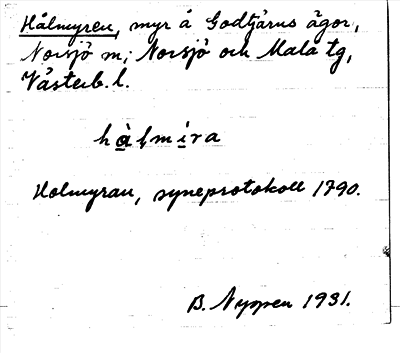 Hålmyren, myr å Godtjärns ägor,
Norsjö m; Norsjö och Malå tg,
Västerb. l.
hàlmira
Holmyran, syneprotokoll 1790.
B. Nyspen 1931.